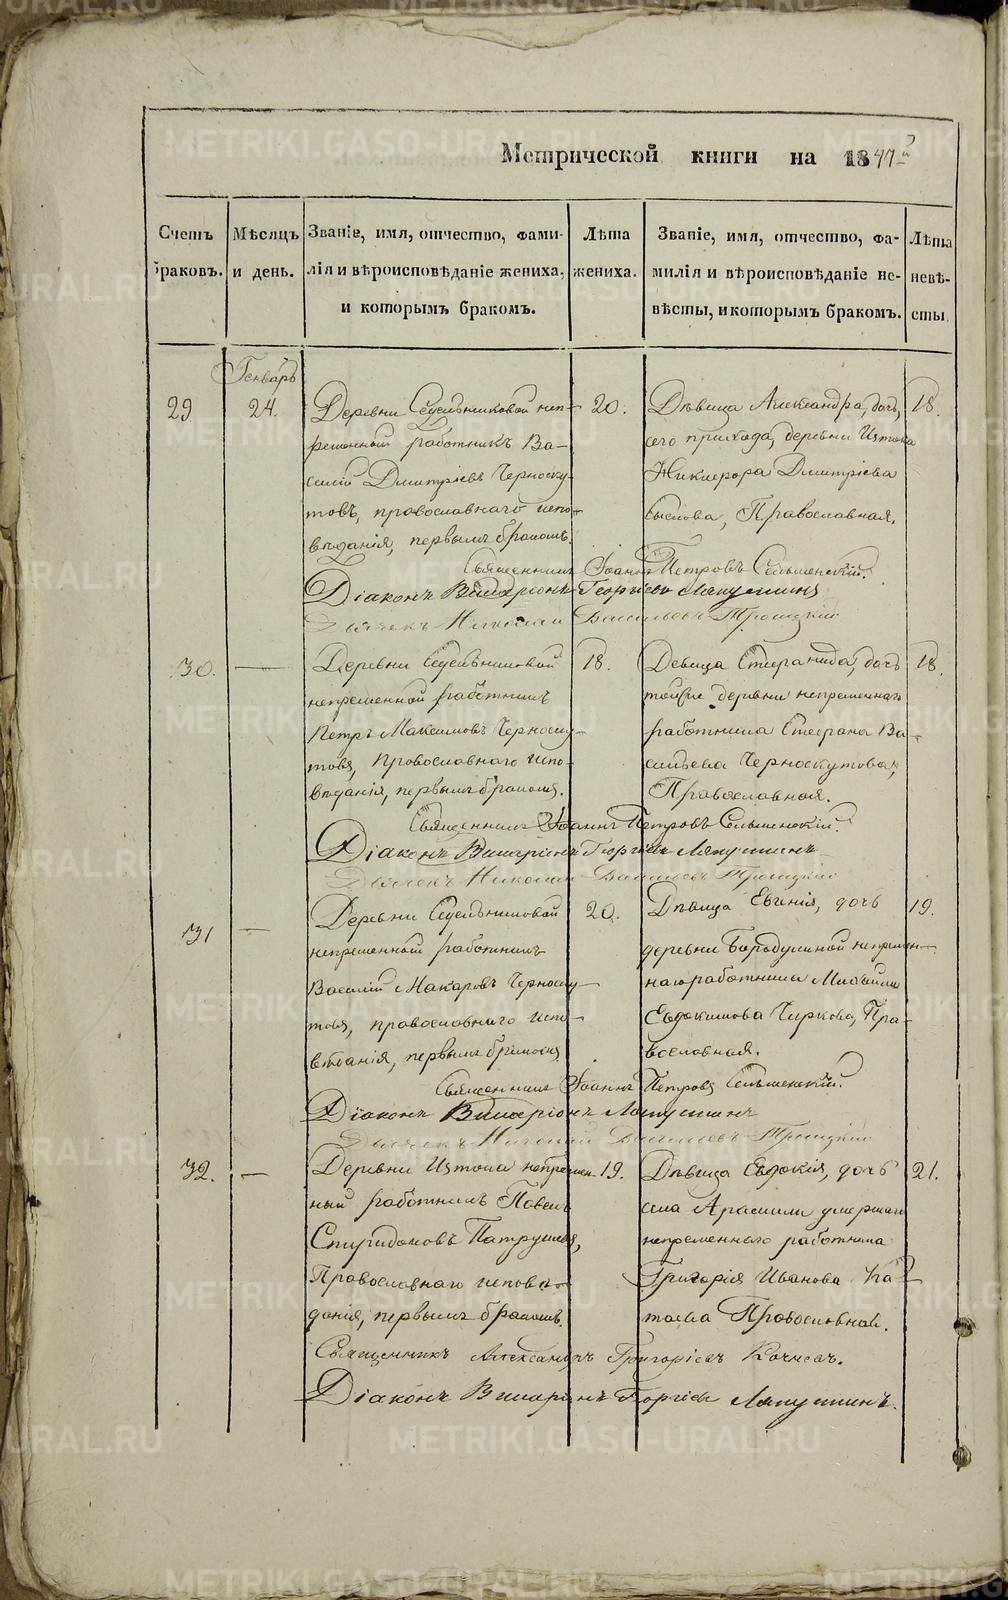 Метрической книги на 1847й
Счетъ браковъ.
Мѣсяцъ и день.
Званіе, имя, отчество, фами-
лія и вѣроисповѣданіе жениха,
и которымъ бракомъ.
Лѣта жениха.
Званіе, имя, отчество, фа-
милія и вѣроисповѣданіе не-
вѣсты, и которымъ бракомъ.
Лѣта невѣ-
сты.
29
Генварь
24.
Деревни неп-
ремѣнный работникъ Ва-
силій Дмитріевъ Черноску-
товъ, православнаго испо-
вѣданія, первымъ бракомъ.
20.
Дѣвица Александра, дочь
сего прихода, деревни Истока
Никифора Дмитріева
Сыслова, Православная.
18.
Священникъ Іоаннъ Петровъ
Діаконъ Георгіевъ Ляпустинъ
Дьячекъ Николай Васильевъ Троицкій
30.
—
Деревни
непремѣнной работникъ
Петръ Максимовъ Черноску-
товъ, Православнаго испо-
вѣданія, первымъ бракомъ.
18.
Девица Стефанида, дочь
той же деревни непременнаго
работника Стефана Ва-
сильева Черноскутова,
Православная.
18.
Священникъ Іоаннъ Петровъ
Діаконъ Георгіевъ Ляпустинъ
Дьячекъ Николай Васильевъ Троицкій
31
—
Деревни
непремѣнный работникъ
Василій Макаровъ Черноску-
товъ, православнаго испо-
вѣданія, первымъ бракомъ
20.
Дѣвица Евгенія, дочь
деревни Бородулиной непремѣн-
наго работника Михаила
Евдокимова Чиркова, Пра-
вославная.
19.
Священникъ Іоаннъ Петровъ
Діаконъ Ляпустинъ
Дьячекъ Николай Васильевъ Троицкій
32.
—
Деревни Истока непремѣн-
ный работникъ Павелъ
Спиридоновъ Патрушевъ,
Православнаго исповѣ-
данія, первымъ бракомъ.
19.
Дѣвица Евдокія, дочь
села Арамили умершаго
непременнаго работника
Григорія Иванова
Православная.
21.
Священникъ Александръ Григоріевъ Кочневъ.
Діаконъ Георгіевъ Ляпустинъ.
METRIKI.GASO-URAL.RU